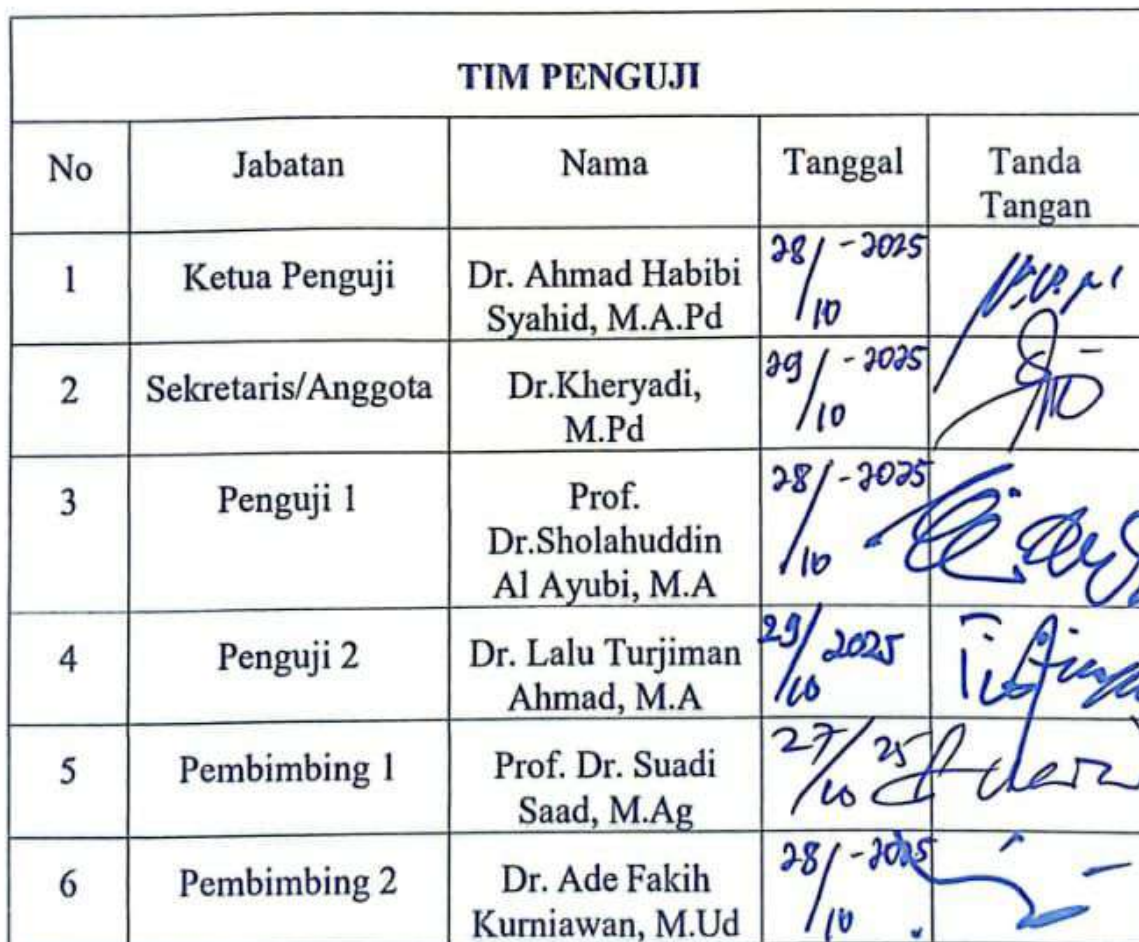 TIM PENGUJI
No Jabatan Nama Tanggal Tanda
Tangan
1 Ketua Penguji Dr. Ahmad Habibi
Syahid, M.A.Pd 28/10-2025
2 Sekretaris/Anggota Dr.Kheryadi,
M.Pd 29/10-2025
3 Penguji 1 Prof.
Dr.Sholahuddin
Al Ayubi, M.A 28/10-2025
4 Penguji 2 Dr. Lalu Turjiman
Ahmad, M.A 29/10 2025
5 Pembimbing 1 Prof. Dr. Suadi
Saad, M.Ag 27/10 25
6 Pembimbing 2 Dr. Ade Fakih
Kurniawan, M.Ud 28/10-2025